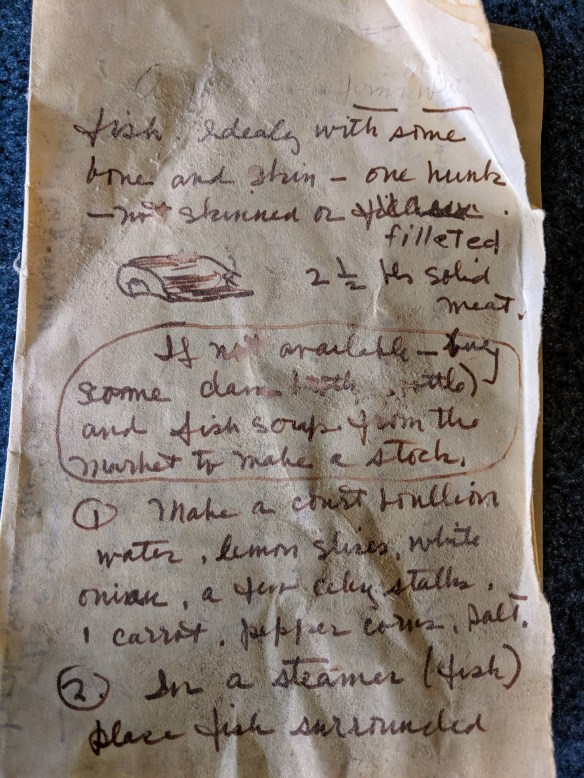 fish. Idealy with some
bone and skin – one hunk
– not skinned or
filleted
2 1/2 lbs solid
meat.
If not available – buy
some clam
and fish scraps from the
market to make a stock.
① Make a court boullion
water, lemon slices, white
onion, a few celey stalks,
1 carrot, pepper corns, salt.
②. In a steamer (fish)
place fish surrounded